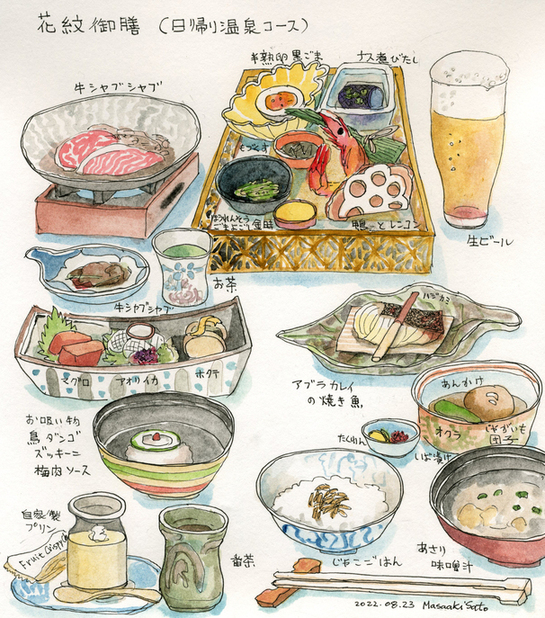 花紋御膳 (日帰り温泉コース)
牛シャブシャブ
半熟卵黒ごま
ナス煮びたし
もづくす
ほうれんそう
ごまよごし
鴨とレンコン
生ビール
お茶
牛シャブシャブ
マグロ
アオリイカ
ホタテ
ハジカミ
アブラカレイ
の焼き魚
あんかけ
オクラ
じゃがいも
団子
お吸い物
鳥ダンゴ
ズッキーニ
梅肉ソース
たくわん
しば漬け
自家製
プリン
Fruit Crepe
番茶
じゃこごはん
あさり
味噌汁
2022.08.23 Masaaki Sato